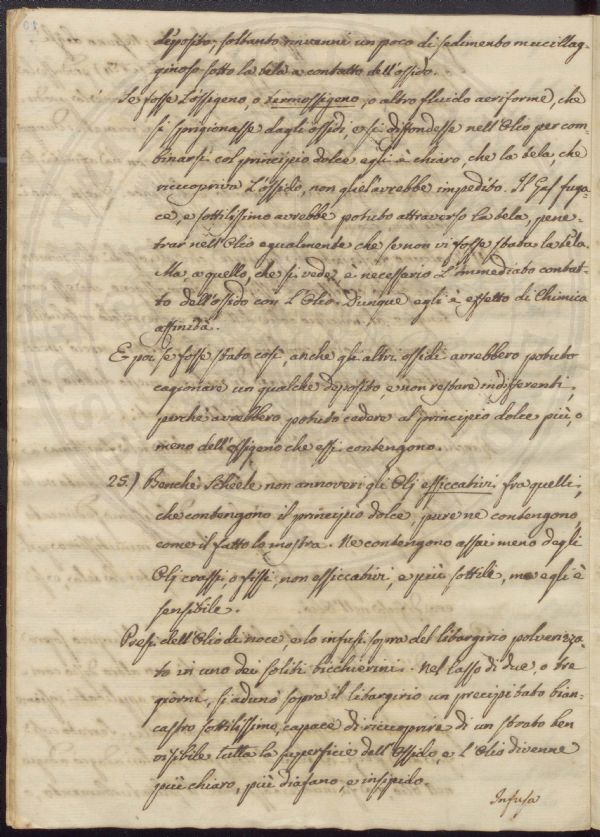 deposito; soltanto rinvenni un poco di sedimento mucillag=
ginoso sotto la tela a contatto dell'ossido.
Se fosse l'ossigeno, o termossigeno, o altro fluido aeriforme, che
si sprigionasse dagli ossidi, e si diffondesse nell'Olio per com=
binarsi col principio dolce egli è chiaro, che la tela, che
ricuopriva l'ossido, non gliel'avrebbe impedito. Il Gas fuga=
ce, e sottilissimo avrebbe potuto attraverso la tela, pene=
trar nell'Olio egualmente che se non vi fosse stata la tela.
Ma a quello, che si vede, è necessario l'immediato contat=
to dell'ossido con l'Olio. Dunque egli è effetto di Chimica
affinità.
E poi se fosse stato così, anche gli altri ossidi avrebbero potuto
cagionare un qualche deposito, e non restare indifferenti;
perchè avrebbero potuto cedere al principio dolce più, o
meno dell'ossigeno che essi contengono.
25.) Benchè Scheele non annoveri gli Olj essiccativi fra quelli,
che contengono il principio dolce, pure ne contengono,
come il fatto lo mostra. Ne contengono assai meno degli
Olj crassi, o fissi, non essiccativi, e più sottile, ma egli è
sensibile.
Presi dell'Olio di noce, e lo infusi sopra del litargirio polverizza=
to in uno dei soliti bicchierini. Nel lasso di due, o tre
giorni, si adunò sopra il litargirio un precipitato bian=
castro sottilissimo, capace di ricuoprire di un strato ben
visibile tutta la superficie dell'Ossido, e l'Olio divenne
più chiaro, più diafano, e insipido.
Infusa